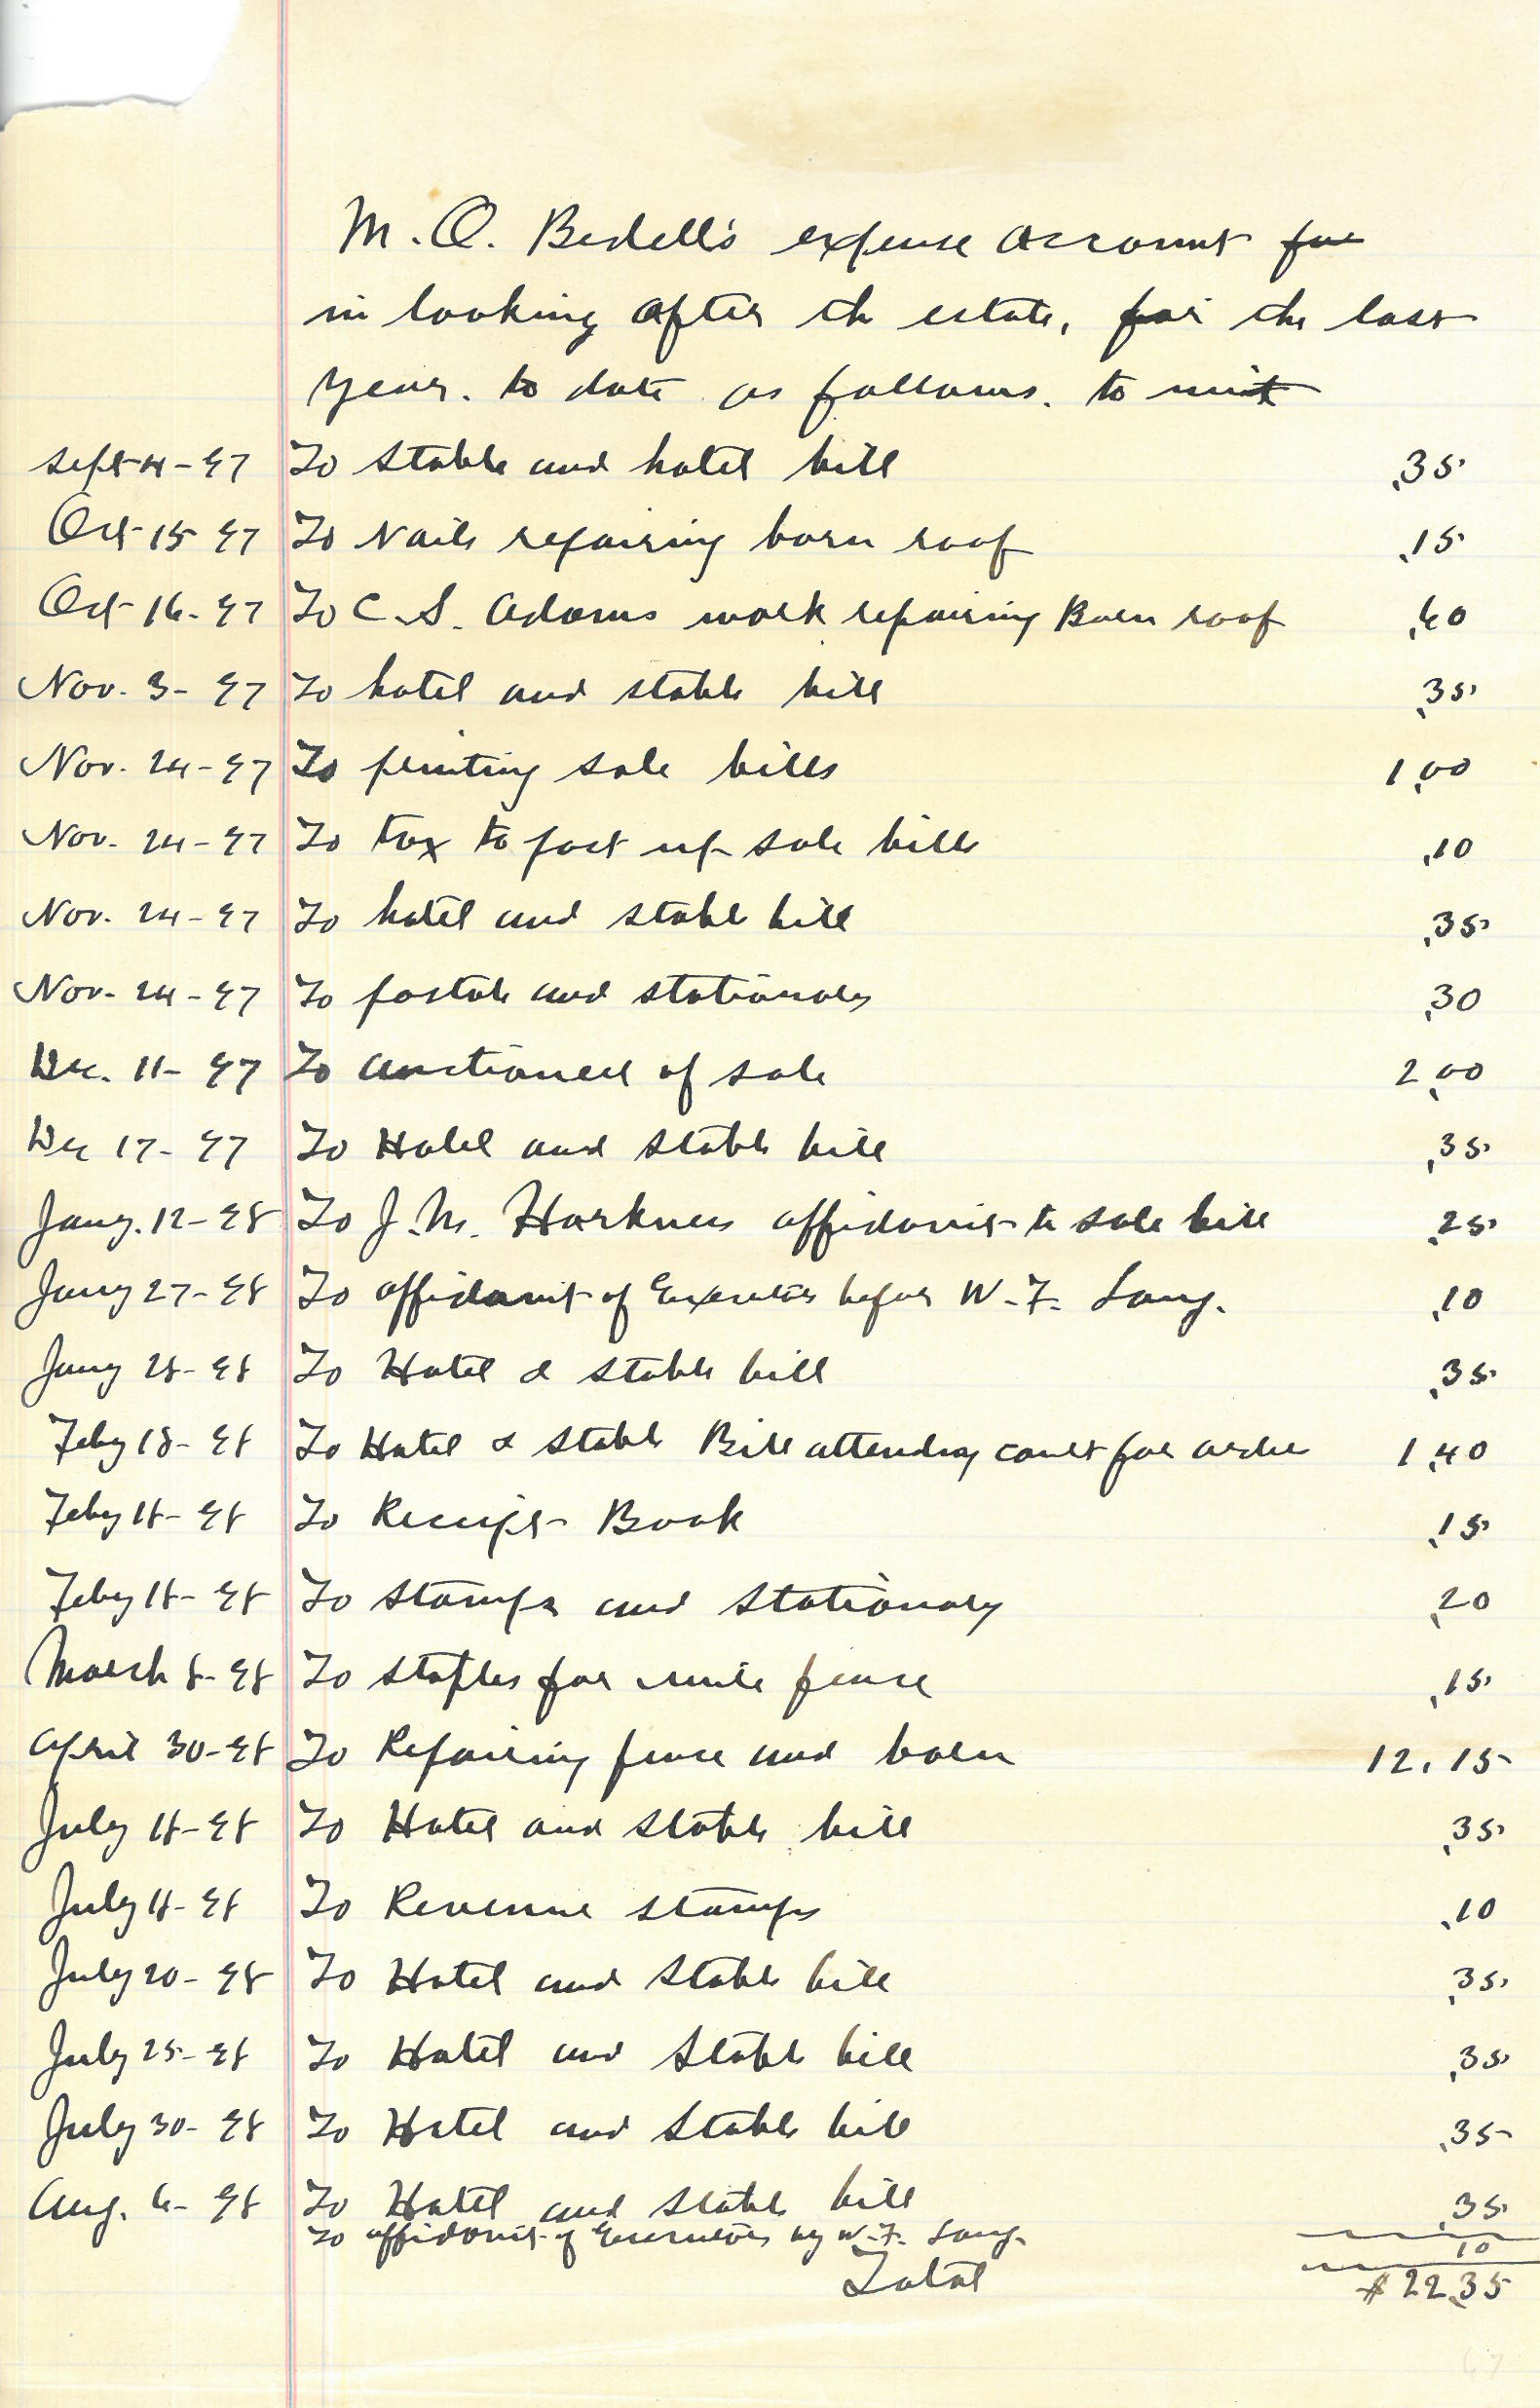 M. O. Bedell's expense account for
in looking after the estate, for the last
year. to date as follows. to wit
Sept 4-97 To stable and hotel bill .35
Oct 15 97 To Nails repairing barn roof .15
Oct 16-97 To C. S. Adams work repairing Barn roof .60
Nov. 3-97 To hotel and stable bill .35
Nov. 24-97 To printing sale bills 1.00
Nov. 24-97 To tax to post up sale bills .10
Nov. 24-97 To hotel and stable bill .35
Nov. 24-97 To postals and stationary .30
Dec. 11-97 To auctioneer of sale 2.00
Dec 17-97 To Hotel and stable bill .35
Jany. 12-98 To J. M. Harkness affidavit to sale bill .25
Jany 27-98 To affidavit of Executors before W. F. Lang. .10
Jany 28-98 To Hotel & stable bill .35
Feby 18-98 To Hotel & stable Bill attending court for order 1.40
Feby 18-98 To Receipt Book .15
Feby 18-98 To stamps and stationary .20
March 8-98 To staples for wire fence .15
April 30-98 To Repairing fence and barn 12.15
July 18-98 To Hotel and stable bill .35
July 18-98 To Revenue stamps .10
July 20-98 To Hotel and stable bill .35
July 25-98 To Hotel and stable bill .35
July 30-98 To Hotel and stable bill .35
Aug. 6-98 To Hotel and stable bill .35
To affidavit of Executors by W. F. Lang. 10
Total $22.35